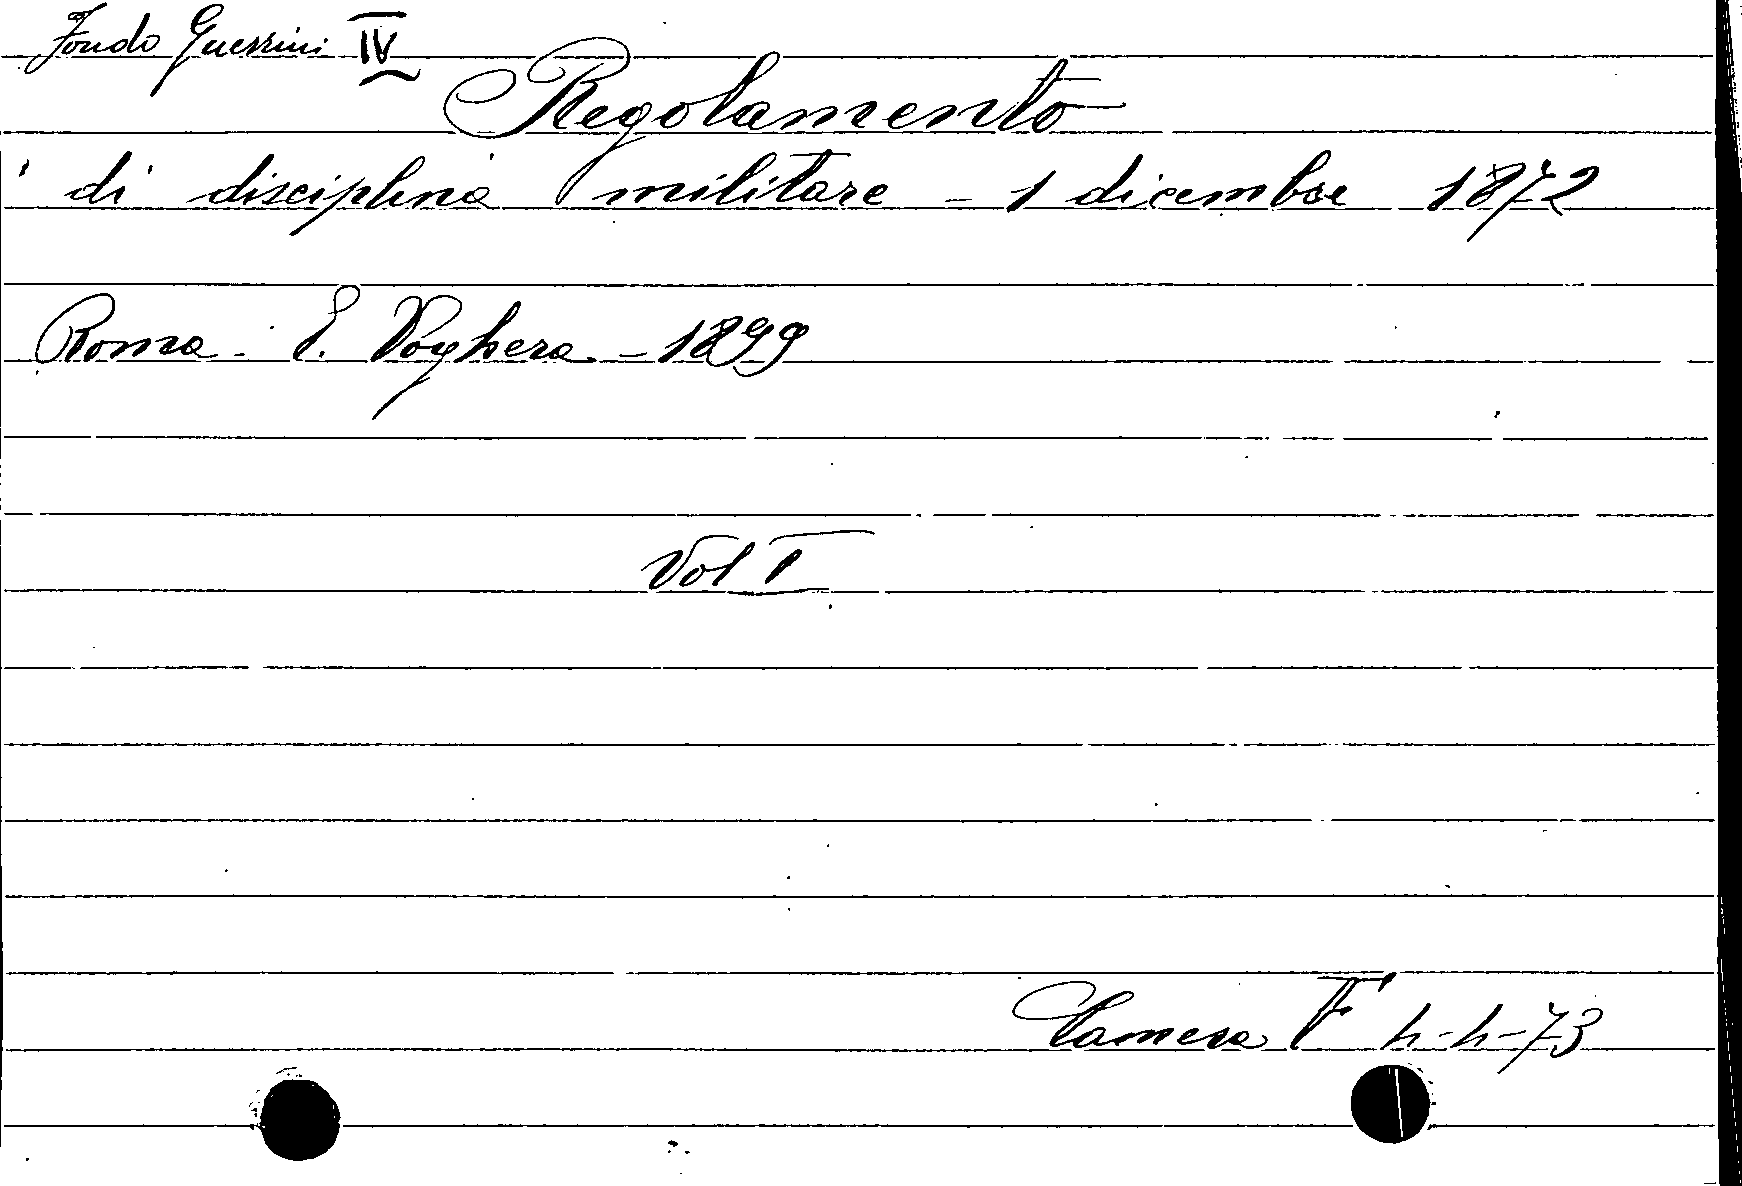 Fondo Guerrini IV
Regolamento
di disciplina militare - 1 dicembre 1872
Roma - E. Voghera - 1899
Vol I
Camera F h-h-73